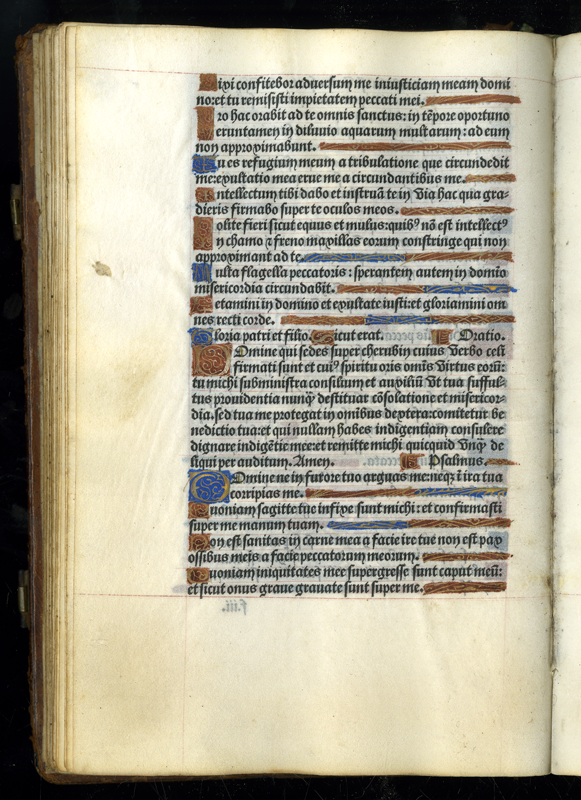 Dixi confitebor adversum me iniusticiam meam domi
no: et tu remisisti impietatem peccati mei.
Pro hac orabit ad te omnis sanctus: in tēpore oportuno
Veruntamen in diluvio aquarum multarum: ad eum
non approximabunt.
Tu es refugium meum a tribulatione que circundedit
me: exultatio mea erue me a circundantibus me.
Intellectum tibi dabo et instruā te in via hac qua gra-
dieris firmabo super te oculos meos.
Nolite fieri sicut equus et mulus: quibꝰ nō est intellectꝰ
In chamo ⁊ freno maxillas eorum constringe qui non
approximant ad te.
Multa flagella peccatoris: sperantem autem in domīo
misericordia circundabit.
Letamini in domino et exultate iusti: et gloriamini om
nes recti corde.
Gloria patri et filio. Sicut erat. Oratio.
Domine qui sedes super cherubin cuius verbo celi
firmati sunt et cuiꝰ spiritu oris omīs virtus eorū:
tu michi subministra consilium et auxiliū vt tua sufful-
tus providentia nunq̄ destituar cōsolatione et misericor-
dia. sed tua me protegat in omībus dextera: comitetur be
nedictio tua: et qui nullam habes indigentiam consulere
dignare indigētie mee: et remitte michi quicquid vnq̄ de
liqui per auditum. Amen. Psalmus.
Domine ne in furore tuo arguas me: neq̄ ī ira tua
corripias me.
Quoniam sagitte tue infixe sunt michi: et confirmasti
super me manum tuam.
Non est sanitas in carne mea a facie ire tue non est pax
ossibus meis a facie peccatorum meorum.
Quoniam iniquitates mee supergresse sunt caput meū:
et sicut onus grave gravate sunt super me.